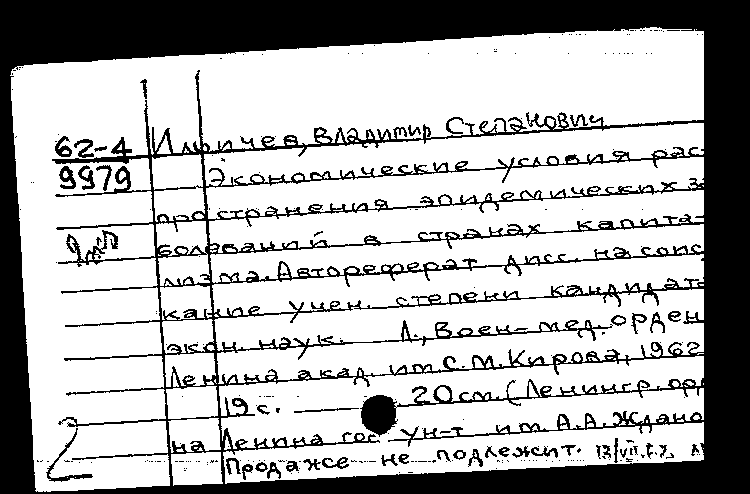 62-4
9979
Ильичев, Владимир Степанович
Экономические условия рас-
пространения эпидемических за
болеваний в странах капита-
лизма. Автореферат дисс. на соис
кание учен. степени кандидата
экон. наук. Л., Воен-мед. орден
Ленина акад. им. С. М. Кирова, 1962
19 с. 20 см. (Ленингр. орд
на Ленина гос ун-т им. А. А. Ждано
Продаже не подлежит.
2